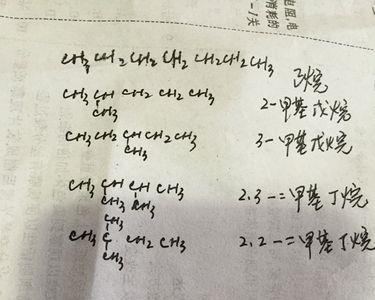 CH3 CH2 CH2 CH2 CH2CH2 CH3
己烷
CH3 CH CH2 CH2 CH3
CH3
2-甲基戊烷
CH3 CH2 CH CH2 CH3
CH3
3-甲基戊烷
CH3 CH CH CH3
CH3 CH3
2.3-二甲基丁烷
CH3
CH3 C CH2 CH3
CH3
2.2-二甲基丁烷